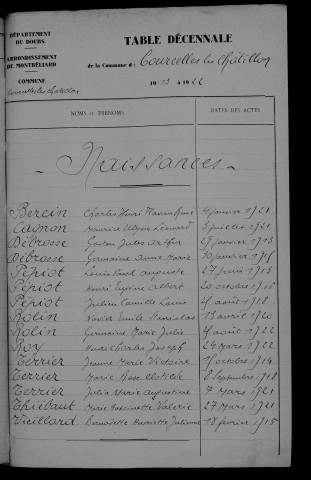 DÉPARTEMENT
DU DOUBS
ARRONDISSEMENT
DE MONTBÉLIARD
COMMUNE
Courcelles les Châtillon
TABLE DÉCENNALE
de la Commune de Courcelles les Châtillon
1913 à 1922
NOMS et PRÉNOMS
DATES DES ACTES
Naissances
Berein Charles Henri 4 janvier 1921
Cagnon Maurice Léonard juillet 1921
Débrosse Gaston Jules Arthur 27 janvier 1913
Débrosse Germaine Anne Marie 30 janvier 1915
Pépiot Louis Paul Auguste 27 juin 1913
Pépiot Henri Eugène Albert 20 octobre 1916
Pépiot Julien Camille Louis août 1918
Rolin Xavier Emile Stanislas 13 avril 1920
Rolin Germaine Marie Julie août 1922
Roy Henri Charles Joseph 24 mars 1922
Terrier Jeanne Marie Victoire octobre 1914
Terrier Marie Rose Clotilde 8 septembre 1918
Terrier Julia Marie Augustine 7 mars 1921
Thiébaut Marie Antoinette Valérie 27 mars 1921
Vieillard Bernadette Henriette Julienne 18 février 1915